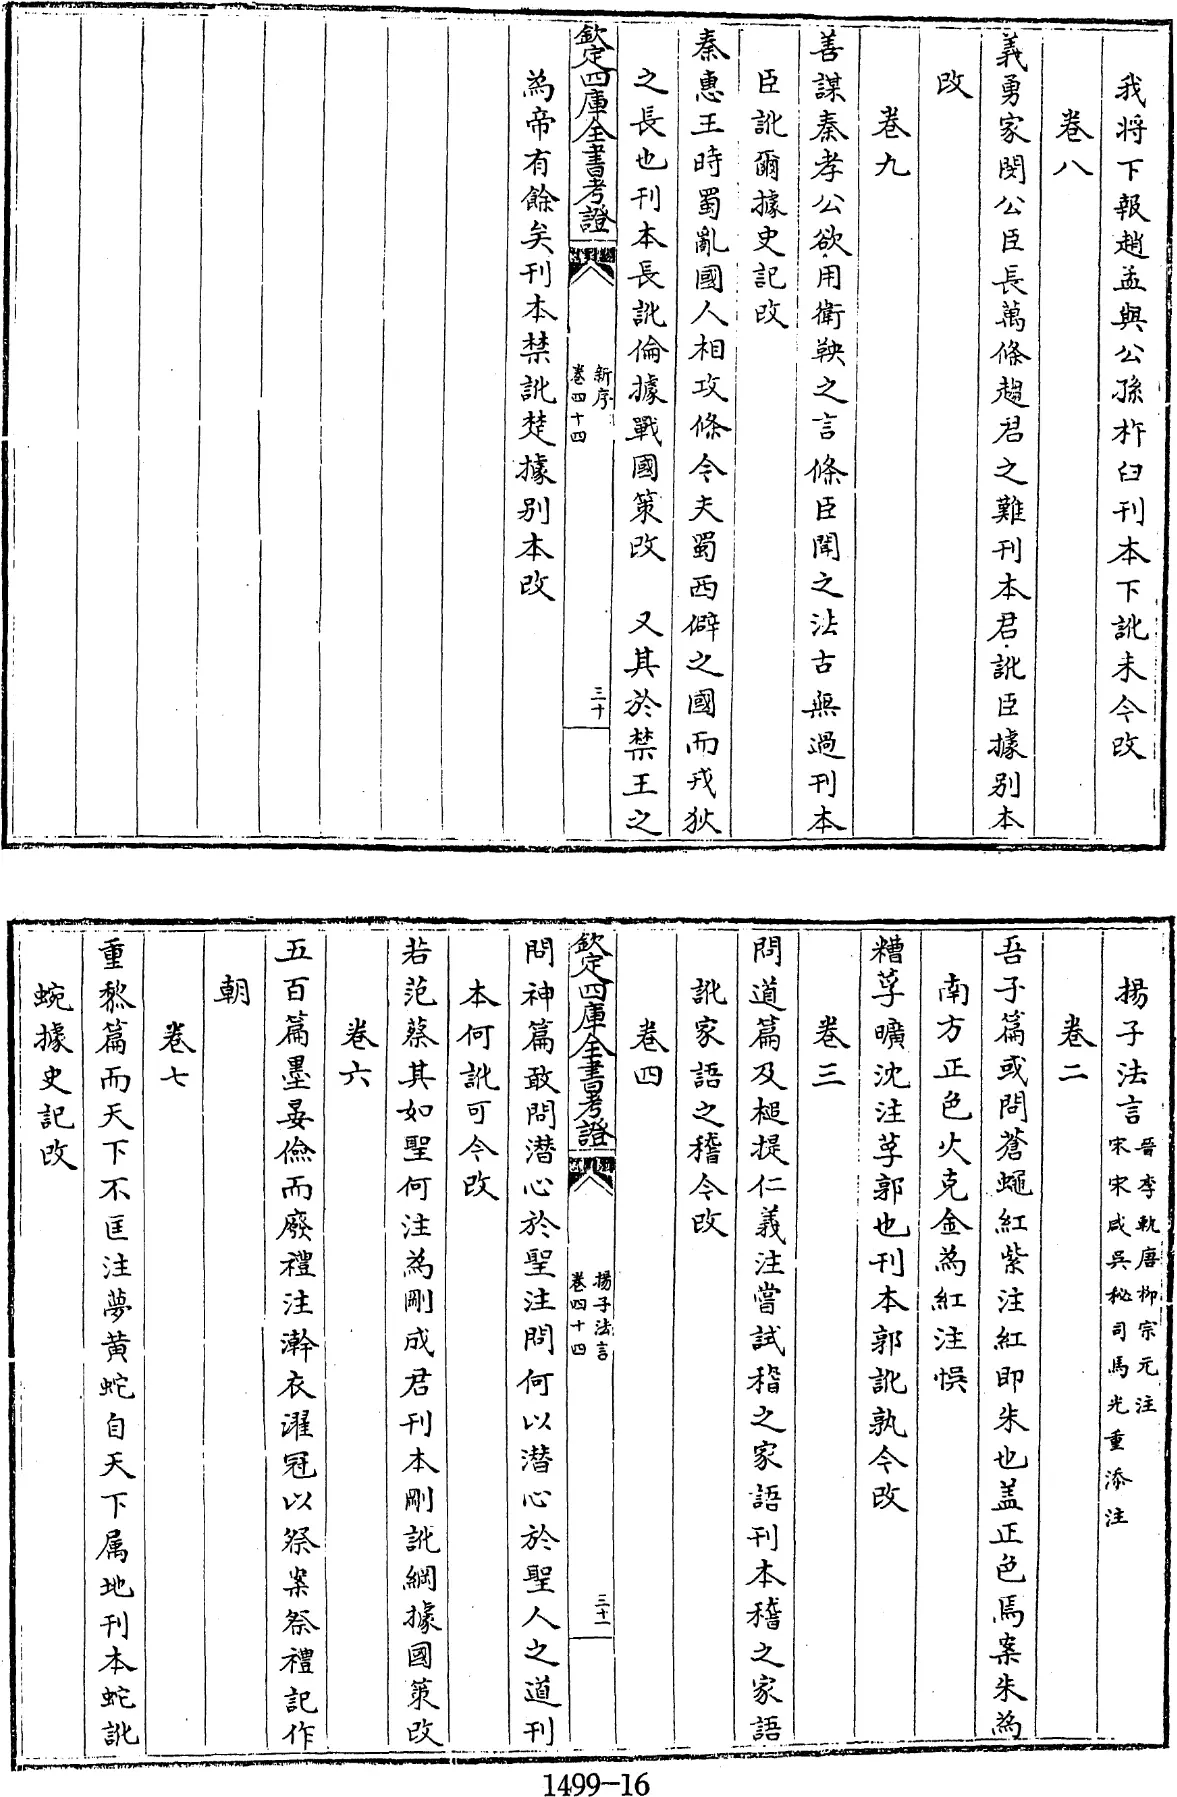 我将下報趙孟與公孫杵臼刊本下訛未今改
卷八
義勇家閔公臣長萬條趙君之難刊本君訛臣據别本
改
卷九
善謀秦孝公欲用衛鞅之言條臣聞之法古無過刊本
臣訛爾據史記改
秦惠王時蜀亂國人相攻條今夫蜀西僻之國而戎狄
之長也刊本長訛倫據戰國策改 又其於禁王之
欽定四庫全書考證
新序
卷四十四
三十
為帝有餘矣刊本禁訛楚據别本改
揚子法言
晉李軌唐柳宗元注
宋宋咸吳秘司馬光重添注
卷二
吾子篇或問蒼蠅紅紫注紅即朱也盖正色焉案朱為
南方正色火克金為紅注悞
糟莩曠沈注莩郭也刊本郭訛孰今改
卷三
問道篇及槌提仁義注嘗試稽之家語刊本稽之家語
訛家語之稽今改
卷四
欽定四庫全書考證
揚子法言
卷四十四
三十一
問神篇敢問潜心於聖注問何以潜心於聖人之道刊
本何訛可今改
若范蔡其如聖何注為剛成君刊本剛訛綱據國策改
卷六
五百篇墨晏儉而廢禮注澣衣濯冠以祭案祭禮記作
朝
卷七
重黎篇而天下不匡注夢黄蛇自天下属地刊本蛇訛
蜿據史記改
1499-16